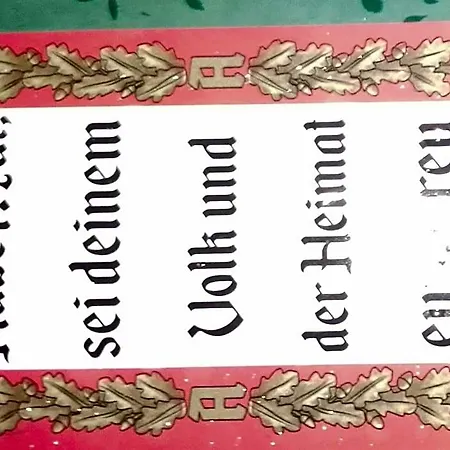 sei deinem
Volk und
der Heimat